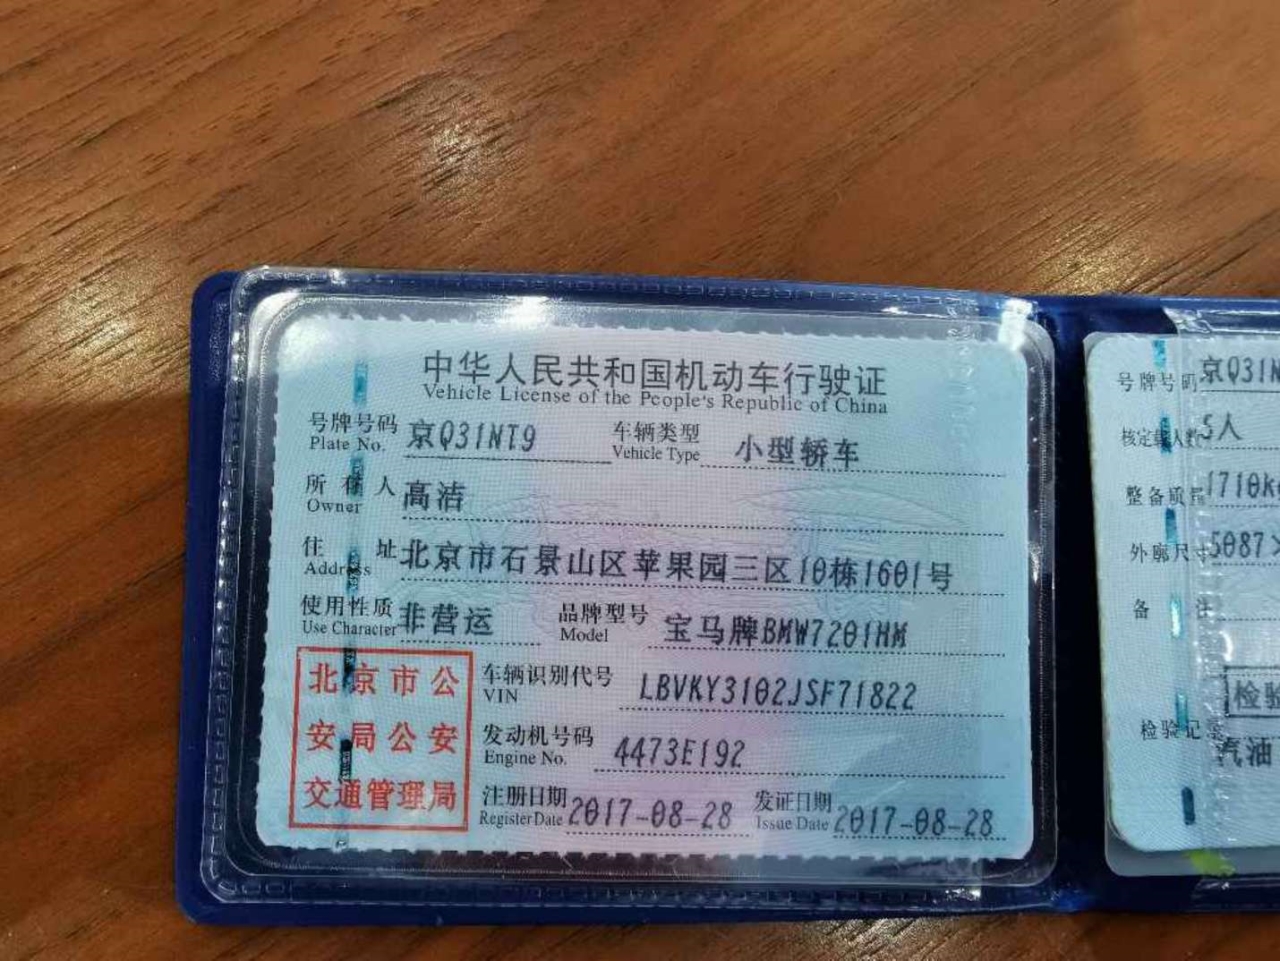 中华人民共和国机动车行驶证
Vehicle License of the People's Republic of China
号牌号码 京Q31NT9 车辆类型 小型轿车
Plate No. Vehicle Type
所有人 高洁
Owner
住址 北京市石景山区苹果园三区10栋1601号
Address
使用性质 非营运 品牌型号 宝马牌BMW7201HM
Use Character Model
北京市公
安局公安
交通管理局
车辆识别代号 LBVKY3102JSF71822
VIN
发动机号码 4473E192
Engine No.
注册日期 2017-08-28 发证日期 2017-08-28
Register Date Issue Date
号牌号码 京Q31N
核定载人数 5人
整备质量 1710k
外廓尺寸 5087×
备注
检验
检验记录
汽油